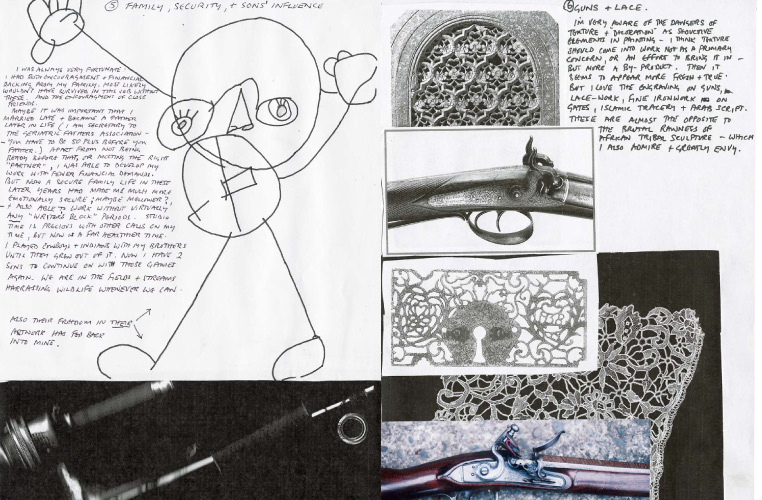 ⑤ FAMILY, SECURITY, + SONS' INFLUENCE
I WAS ALWAYS VERY FORTUNATE -
I HAD BOTH ENCOURAGMENT + FINANCIAL
BACKING FROM MY FAMILY. MOST LIKELY
WOULDN'T HAVE SURVIVED IN THIS JOB WITHOUT
THESE AND THE ENCOURAGMENT OF CLOSE
FRIENDS.
MAYBE IT WAS IMPORTANT THAT I
MARRIED LATE + BECAME A FATHER
LATER IN LIFE (I AM SECRETARY TO
THE GERIATRIC FATHERS ASSOCIATION -
YOU HAVE TO BE 50 PLUS BEFORE YOU
FATHER.) APART FROM NOT BEING
READY BEFORE THAT, OR MEETING THE RIGHT
"PARTNER", I WAS ABLE TO DEVELOP MY
WORK WITH FEWER FINANCIAL DEMANDS.
BUT NOW A SECURE FAMILY LIFE IN THESE
LATER YEARS HAS MADE ME MUCH MORE
EMOTIONALLY SECURE; MAYBE MELLOWER?,
+ ALSO ABLE TO WORK WITHOUT VIRTUALLY
ANY "WRITER'S BLOCK" PERIODS. STUDIO
TIME IS PRECIOUS WITH OTHER CALLS ON MY
TIME, BUT NOW IS A FAR HEALTHIER TIME.
I PLAYED COWBOYS + INDIANS WITH MY BROTHERS
UNTIL THEY GREW OUT OF IT. NOW I HAVE 2
SONS TO CONTINUE ON WITH THOSE GAMES
AGAIN. WE ARE IN THE FIELDS + STREAMS
HARRASSING WILDLIFE WHENEVER WE CAN -
ALSO THEIR FREEDOM IN THEIR
ARTWORK HAS FED BACK
INTO MINE.
⑥ GUNS + LACE.
I'M VERY AWARE OF THE DANGERS OF
TEXTURE + DECORATION AS SEDUCTIVE
ELEMENTS IN PAINTING - I THINK TEXTURE
SHOULD COME INTO WORK NOT AS A PRIMARY
CONCERN, OR AN EFFORT TO BRING IT IN -
BUT MORE A BY-PRODUCT. THEN IT
SEEMS TO APPEAR MORE FRESH + TRUE.
BUT I LOVE THE ENGRAVING ON GUNS,
LACE-WORK, FINE IRONWORK ON
GATES, ISLAMIC TRACERY + ARAB SCRIPT.
THESE ARE ALMOST THE OPPOSITE TO
THE BRUTAL RAWNESS OF
AFRICAN TRIBAL SCULPTURE - WHICH
I ALSO ADMIRE + GREATLY ENVY.